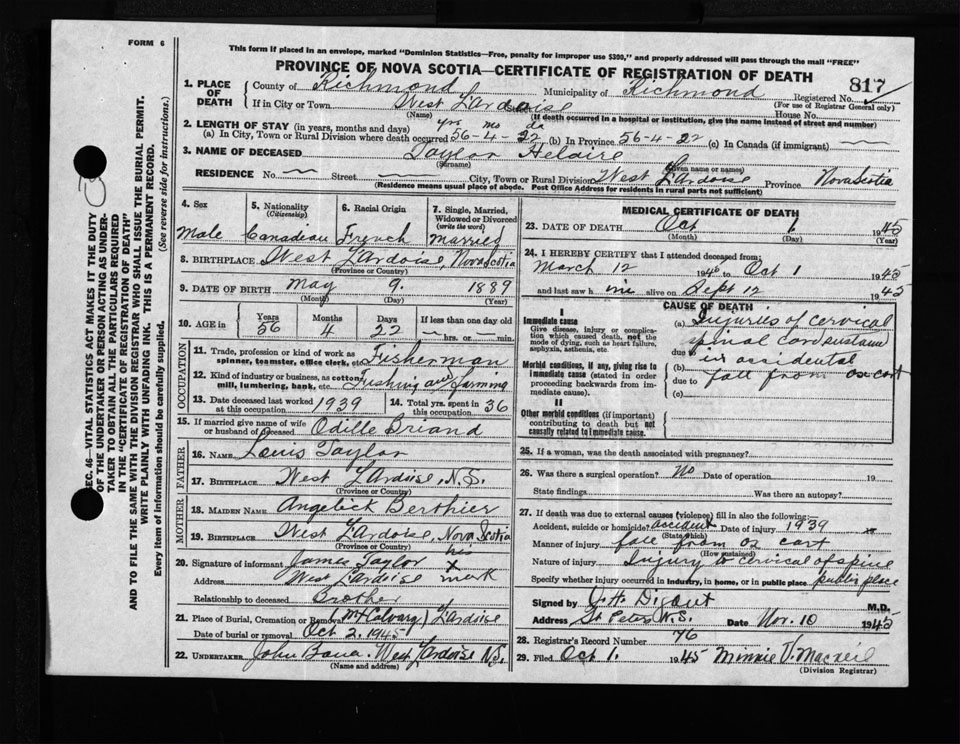 FORM 6
This form if placed in an envelope, marked "Dominion Statistics—Free, penalty for improper use $300," and properly addressed will pass through the mail "FREE"
PROVINCE OF NOVA SCOTIA—CERTIFICATE OF REGISTRATION OF DEATH
817
SEC. 46—VITAL STATISTICS ACT MAKES IT THE DUTY
OF THE UNDERTAKER OR PERSON ACTING AS UNDER-
TAKER TO OBTAIN ALL THE PARTICULARS REQUIRED
IN THE "CERTIFICATE OF REGISTRATION OF DEATH"
AND TO FILE THE SAME WITH THE DIVISION REGISTRAR WHO SHALL ISSUE THE BURIAL PERMIT.
WRITE PLAINLY WITH UNFADING INK. THIS IS A PERMANENT RECORD.
Every item of information should be carefully supplied. (See reverse side for instructions.)
1. PLACE OF DEATH
County of Richmond Municipality of Richmond Registered No.
(For use of Registrar General only)
If in City or Town West L'Ardoise Street House No.
(Name) (If death occurred in a hospital or institution, give the name instead of street and number)
2. LENGTH OF STAY (in years, months and days) yrs mo da
(a) In City, Town or Rural Division where death occurred 56-4-22 (b) In Province 56-4-22 (c) In Canada (if immigrant)
3. NAME OF DECEASED Taylor Helaire
(Surname) (Given name or names)
RESIDENCE No. — Street — City, Town or Rural Division West L'Ardoise Province Nova Scotia
(Residence means usual place of abode. Post Office Address for residents in rural parts not sufficient)
4. Sex Male
5. Nationality (Citizenship) Canadian
6. Racial Origin French
7. Single, Married, Widowed or Divorced (write the word) Married
8. BIRTHPLACE West L'Ardoise, Nova Scotia
(Province or Country)
9. DATE OF BIRTH May 9. 1889
(Month) (Day) (Year)
10. AGE in Years 56 Months 4 Days 22 If less than one day old — hrs. or — min.
OCCUPATION
11. Trade, profession or kind of work as spinner, teamster, office clerk, etc. Fisherman
12. Kind of industry or business, as cotton mill, lumbering, bank, etc. Fishing and farming
13. Date deceased last worked at this occupation 1939
14. Total yrs. spent in this occupation 36
15. If married give name of wife or husband of deceased Odille Briand
FATHER
16. NAME Louis Taylor
17. BIRTHPLACE West L'Ardoise, N.S.
(Province or Country)
MOTHER
18. MAIDEN NAME Angelick Berthier
19. BIRTHPLACE West L'Ardoise, Nova Scotia
(Province or Country)
20. Signature of informant James Taylor his X mark
Address West L'Ardoise
Relationship to deceased Brother
21. Place of Burial, Cremation or Removal (Mt Calvary) L'Ardoise
Date of burial or removal Oct 2, 1945
22. UNDERTAKER John Bona. West L'Ardoise N.S.
(Name and address)
MEDICAL CERTIFICATE OF DEATH
23. DATE OF DEATH Oct 1 1945
(Month) (Day) (Year)
24. I HEREBY CERTIFY that I attended deceased from:
March 12 1940 to Oct 1 1945
and last saw him alive on Sept 12 1945
CAUSE OF DEATH
I
Immediate cause
Give disease, injury or complication which caused death, not the mode of dying, such as heart failure, asphyxia, asthenia, etc.
Morbid conditions, if any, giving rise to immediate cause (stated in order proceeding backwards from immediate cause).
II
Other morbid conditions (if important) contributing to death but not causally related to immediate cause.
(a) Injuries of cervical
spinal cord sustained
due to in accidental
(b) fall from ox cart
due to
(c)
25. If a woman, was the death associated with pregnancy?
26. Was there a surgical operation? No Date of operation 19
State findings Was there an autopsy?
27. If death was due to external causes (violence) fill in also the following:
Accident, suicide or homicide? accident Date of injury 1939
(State which)
Manner of injury fall from ox cart
(How sustained)
Nature of injury Injury to cervical of spine
Specify whether injury occurred in industry, in home, or in public place public place
Signed by Digout M.D.
Address St Peters N.S. Date Nov. 10 1945
28. Registrar's Record Number 76
29. Filed Oct 1. 1945 Minnie V. MacNeil
(Division Registrar)